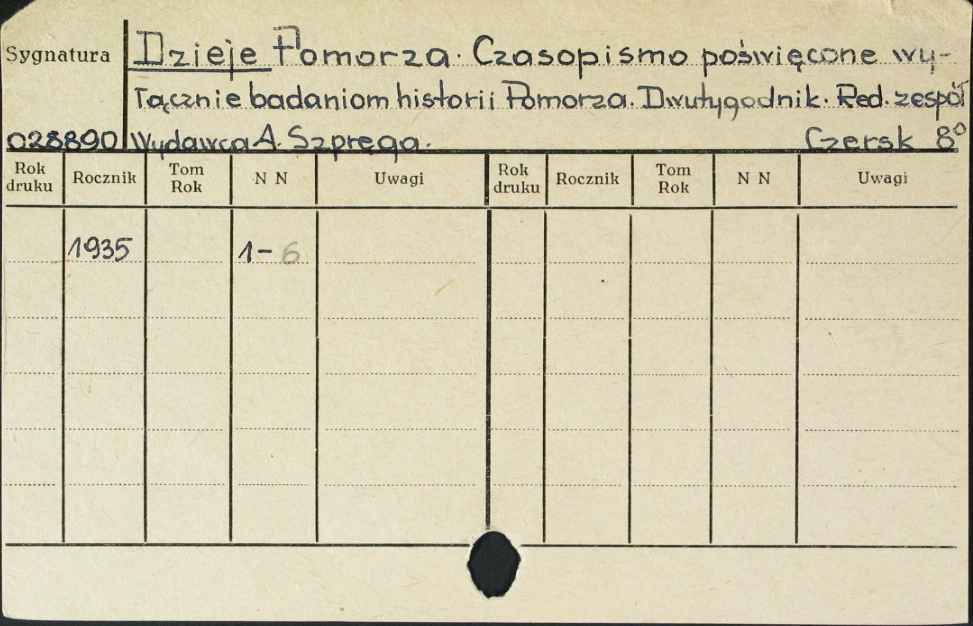 Sygnatura Dzieje Pomorza. Czasopismo poświęcone wy-
łącznie badaniom historii Pomorza. Dwutygodnik. Red. zespół
028890 Wydawca A. Szpręga. Czersk 8°
Rok druku Rocznik Tom Rok N N Uwagi Rok druku Rocznik Tom Rok N N Uwagi
1935 1-6